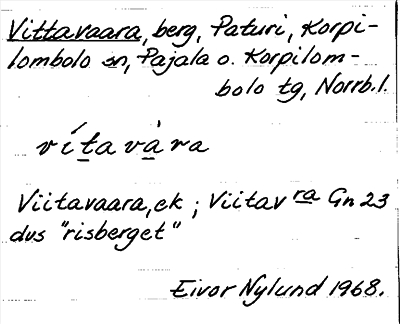 Vittavaara, berg, Paturi, Korpi-
lombolo sn, Pajala o. Korpilom-
bolo tg, Norrb.l.
vítavàra
Viitavaara, ek ; Viitav ra Gn 23
dvs "risberget"
Eivor Nylund 1968.